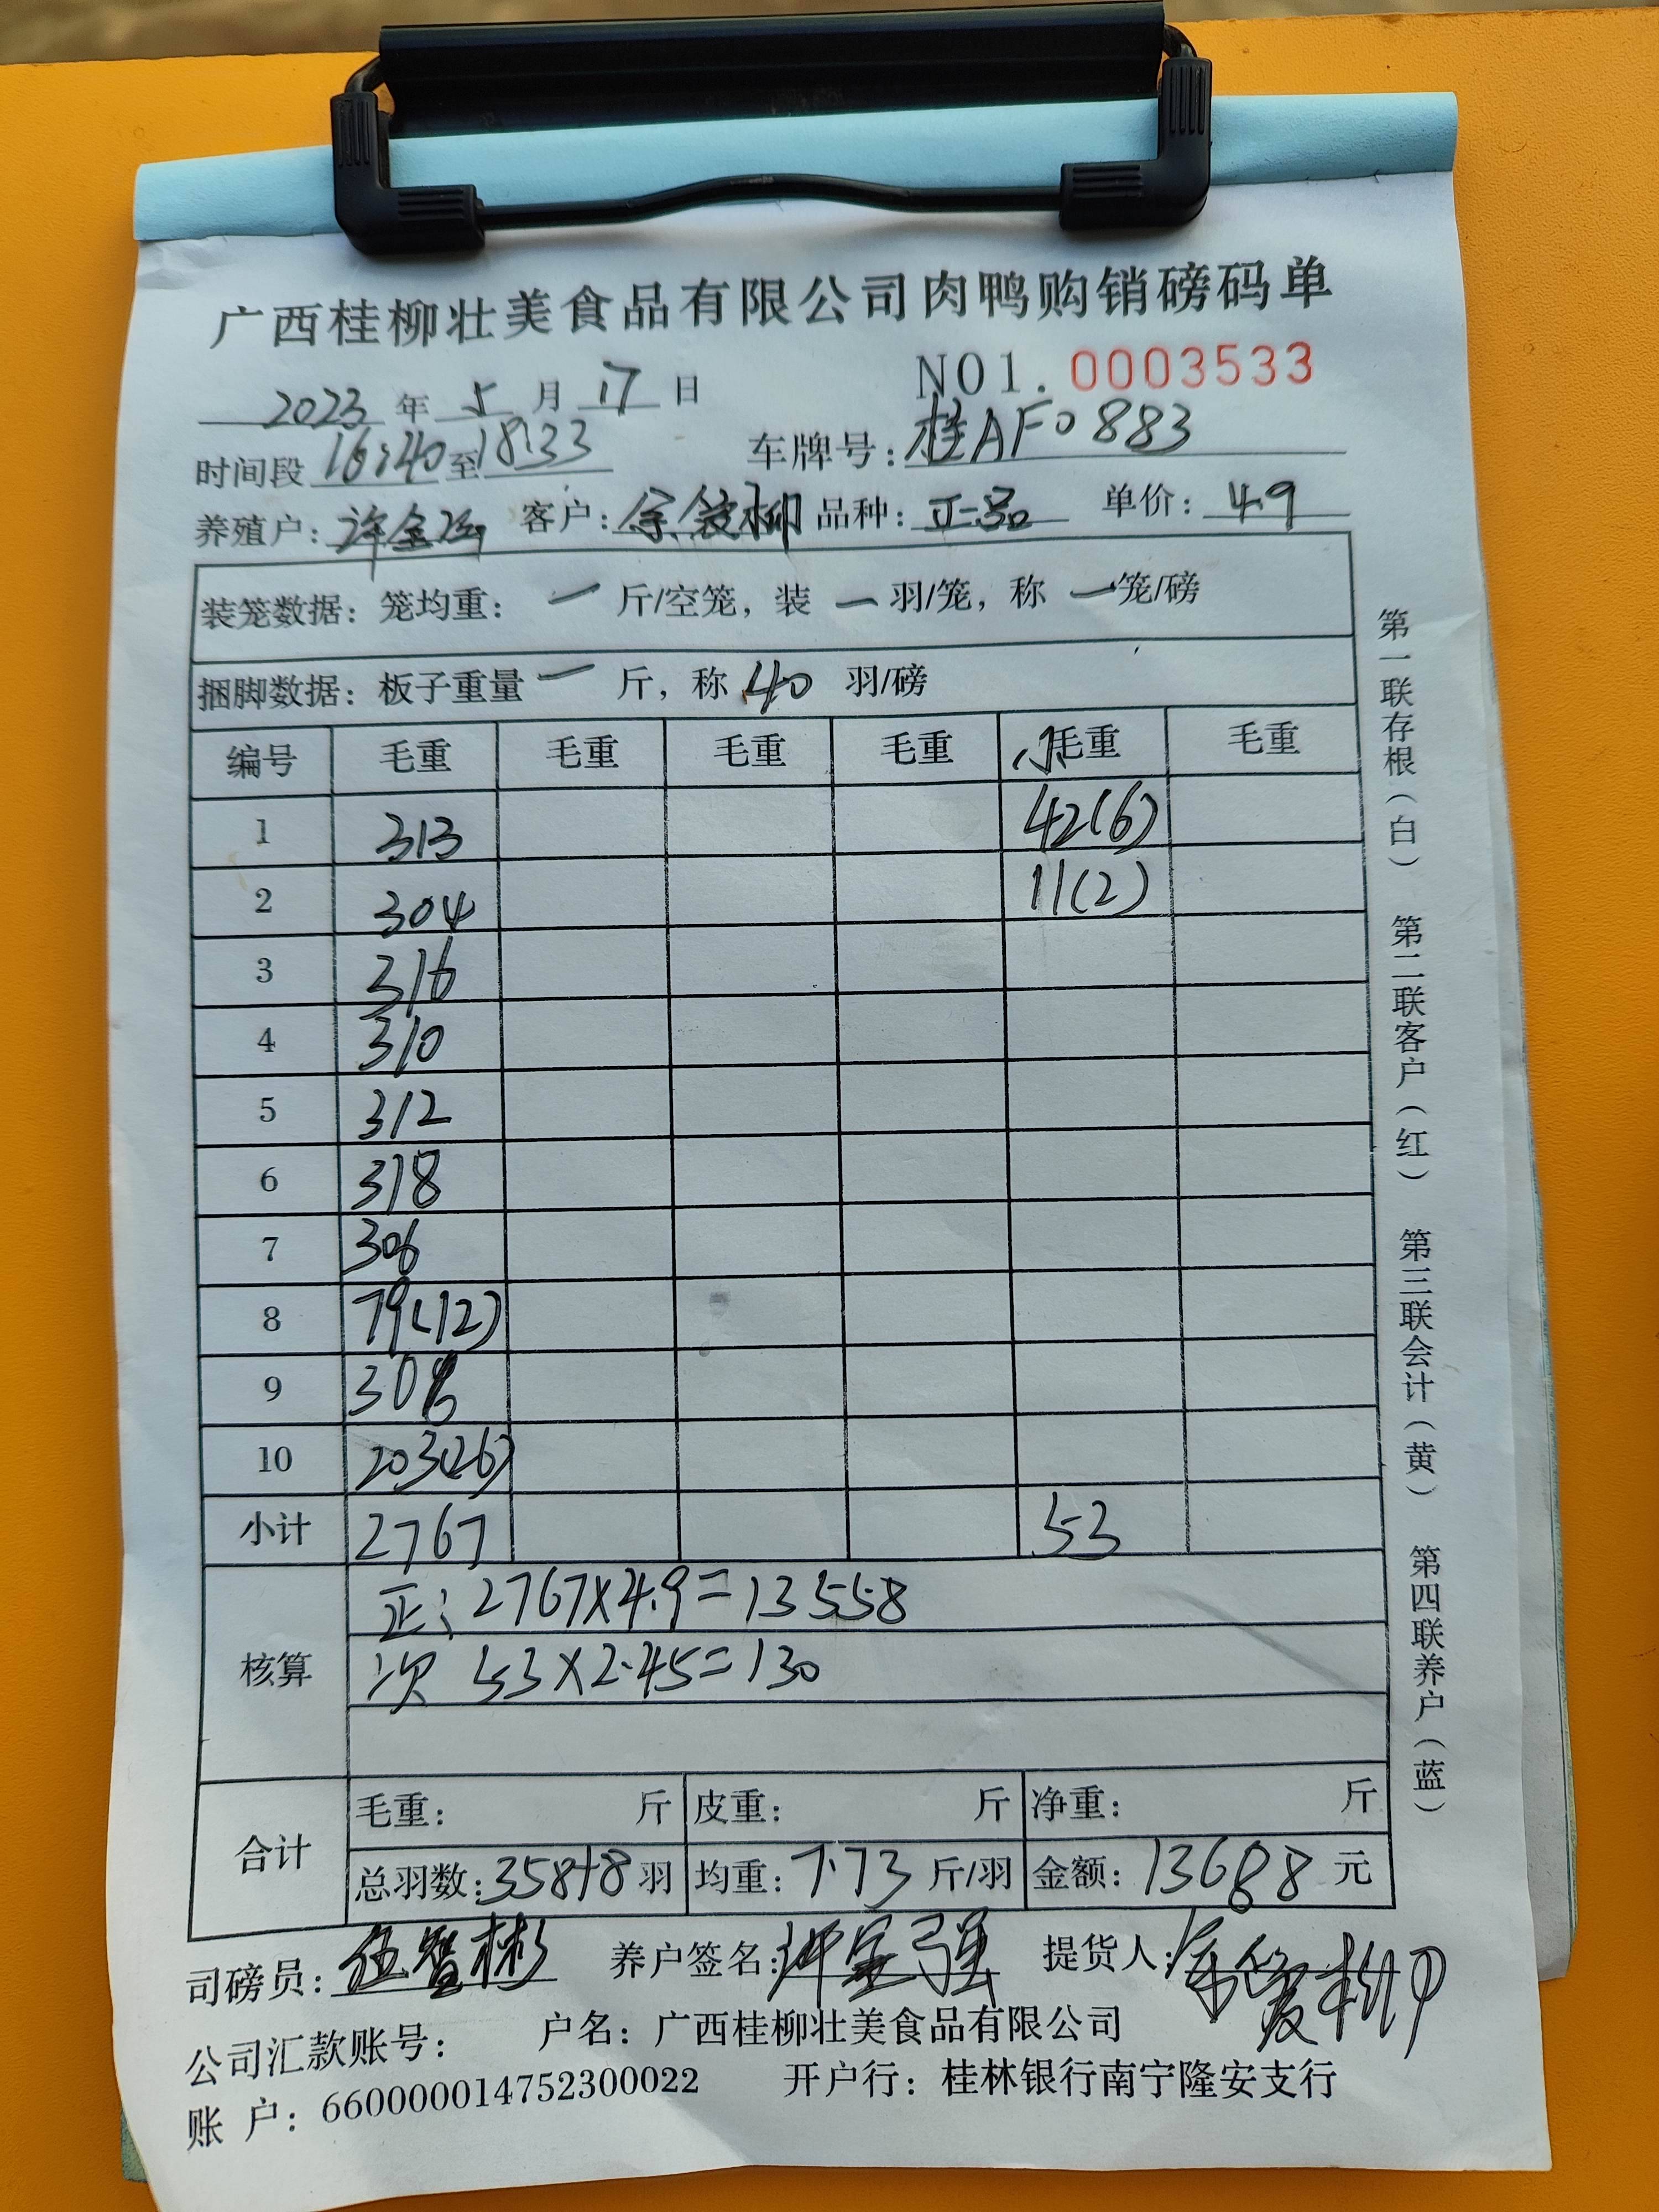 广西桂柳壮美食品有限公司肉鸭购销磅码单
2023年5月17日 NO1.0003533
时间段16:40至18:33 车牌号:桂AF0883
养殖户: 客户: 品种:正品 单价:4.9
装笼数据:笼均重:一斤/空笼,装一羽/笼,称一笼/磅
捆脚数据:板子重量一斤,称40羽/磅
编号 毛重 毛重 毛重 毛重 次毛重 毛重
1 313 42(6)
2 304 11(2)
3 316
4 310
5 312
6 318
7 306
8 79(12)
9 306
10 203(26)
小计 2767 53
核算 正:2767×4.9=13558
次 53×2.45=130
合计 毛重: 斤 皮重: 斤 净重: 斤
总羽数:358+8羽 均重:7.73斤/羽 金额:13688元
司磅员:伍智彬 养户签名: 提货人:
公司汇款账号: 户名:广西桂柳壮美食品有限公司
账 户:660000014752300022 开户行:桂林银行南宁隆安支行
第一联存根(白) 第二联客户(红) 第三联会计(黄) 第四联养户(蓝)